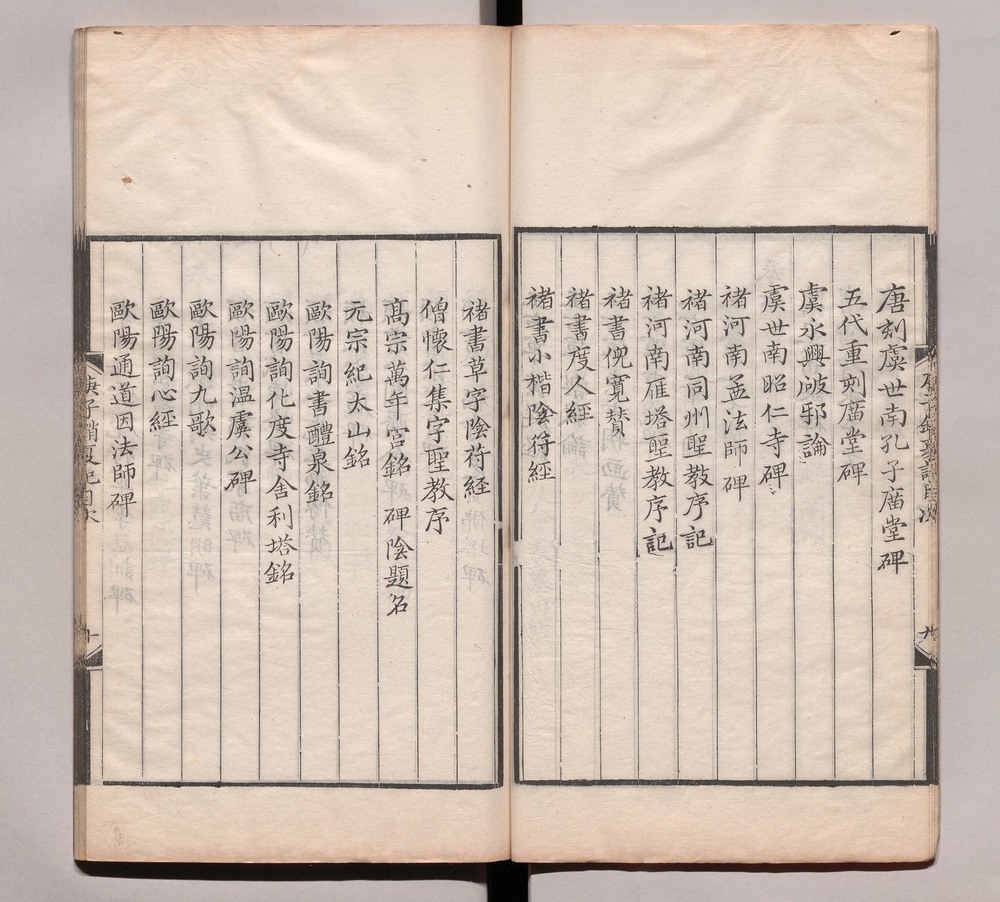 唐刻虞世南孔子廟堂碑
五代重刻廟堂碑
虞永興破邪論
虞世南昭仁寺碑
褚河南孟法師碑
褚河南同州聖教序記
褚河南雁塔聖教序記
褚書倪寬贊
褚書度人經
褚書小楷陰符經
褚書草字陰符經
僧懷仁集字聖教序
高宗萬年宮銘碑陰題名
元宗紀太山銘
歐陽詢書醴泉銘
歐陽詢化度寺舍利塔銘
歐陽詢溫虞公碑
歐陽詢九歌
歐陽詢心經
歐陽通道因法師碑
庚子銷夏記目次